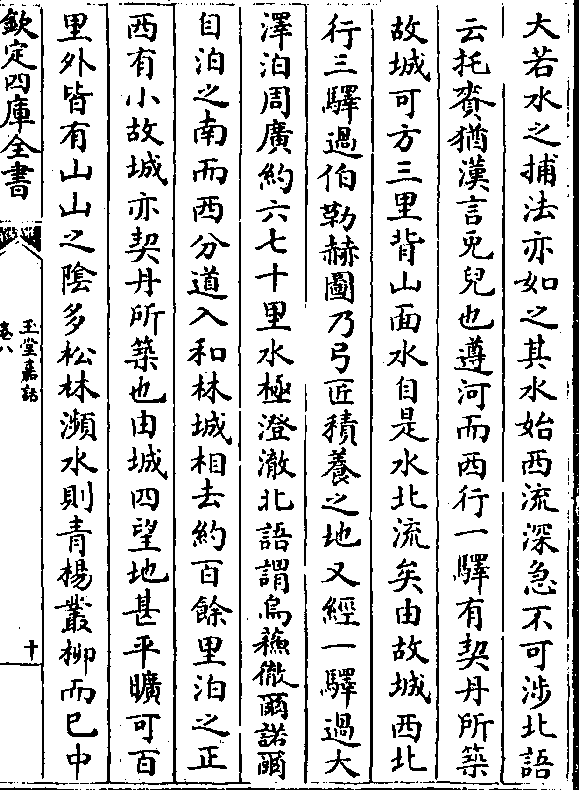 大若水之捕法亦如之其水始西流深急不可涉北語
云托賚猶漢言兎兒也遵河而西行一驛有契丹所築
故城可方三里背山面水自是水北流矣由故城西北
行三驛過伯勒赫圖乃弓匠積養之地又經一驛過大
澤泊周廣約六七十里水極澄澈北語謂烏蘓徹爾諾爾
自泊之南而西分道入和林城相去約百餘里泊之正
西有小故城亦契丹所築也由城四望地甚平曠可百
里外皆有山山之陰多松林瀕水則青楊叢柳而已中
欽定四庫全書
玉堂嘉話
卷八
十